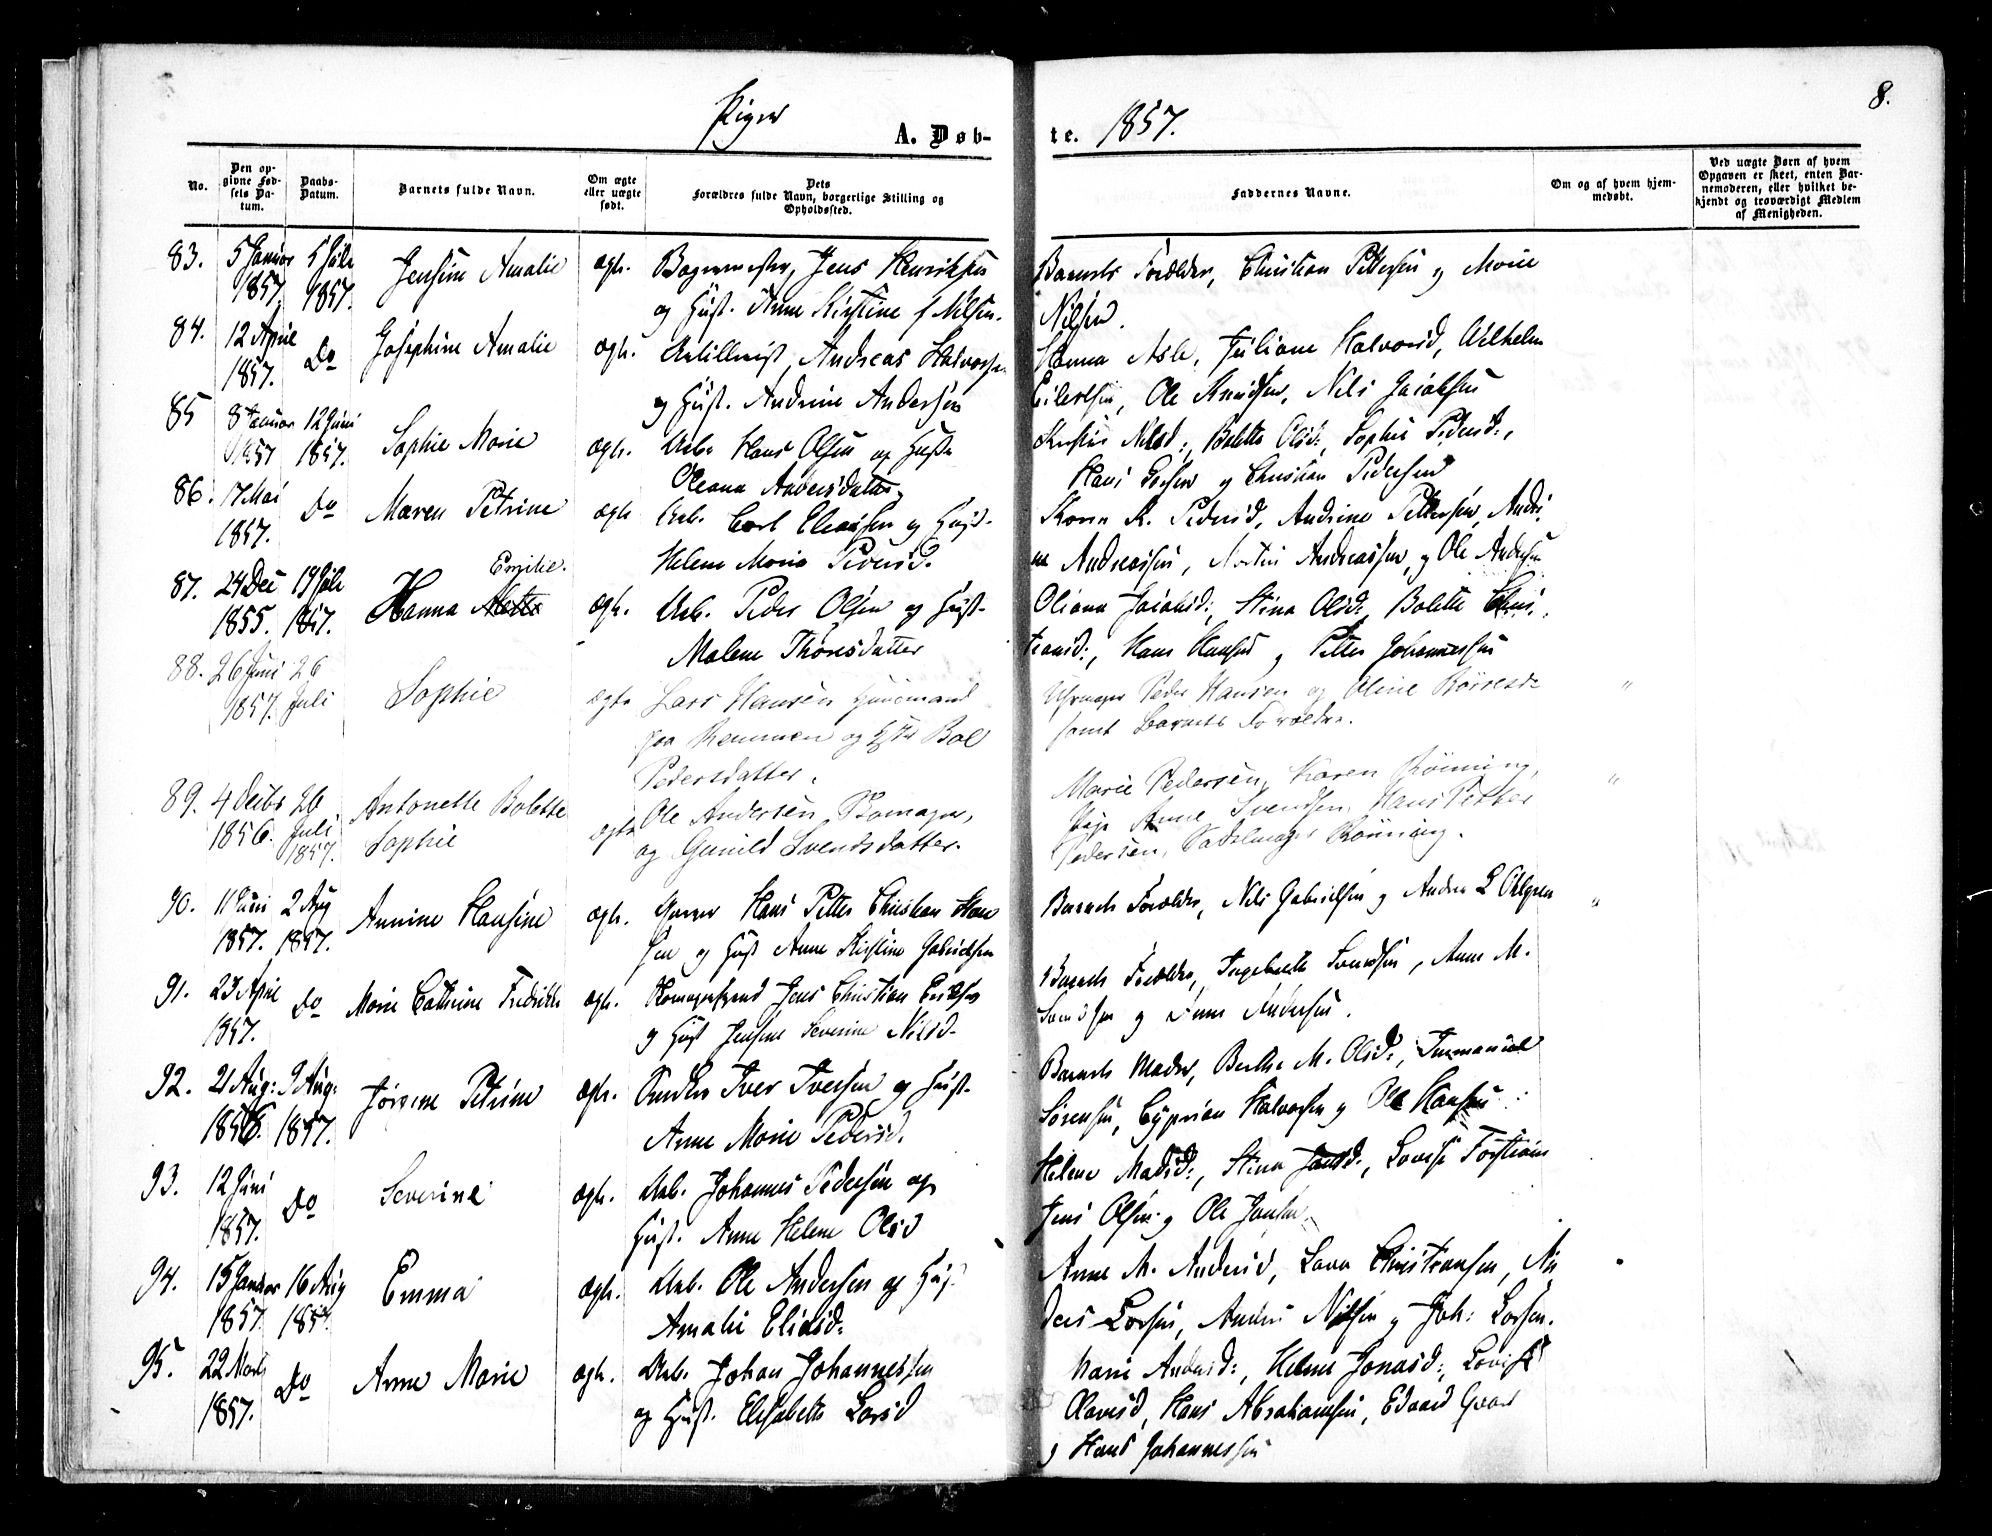 Piger
A. Døb-
te. 1857.
8.
No.
Den op-
givne Fød-
sels Da-
tum.
Daabs-
Datum.
Barnets fulde Navn.
Om ægte
eller uægte
født.
Dets
Forældres fulde Navn, borgerlige Stilling og
Opholdssted.
Faddernes Navne.
Om og af hvem hjem-
medøbt.
Ved uægte Børn af hvem
Opgaven er skeet, enten Bar-
nemoderen, eller hvilket be-
kjendt og troværdigt Medlem
af Menigheden.
83. 5 Januar 5 Juli Jensine Amalie ægte. Jens Henriksen
1857 1857. og Hust. Anne Kirstine f Nilsen.
Barnets Forældre, Christian Pettersen og Marie
Nilsen.
84. 12 April Do Josephine Amalie ægte. Andreas Halvorsen
1857. og Hust. Andrine Andersen
Hanna Juliane Halvorsd, Wilhelm
Eilertsen, Ole Knudsen, Nils Jacobsen
85 8 Januar 12 Juni Sophie Marie ægte. Arb. Hans Olsen og Hust.
1857 1857. Oleana Andersdatter
Nilsd:, Bolette Olsd:, Sophie Pedersd:,
Hans og Christian Pedersen
86. 17 Mai Do Maren Petrine ægte Arb. Carl Eliassen og Hust.
1857. Helene Marie Pedersd.
Karen K. Pedersd, Andrine Pettersen, Andri
ne Andreassen, Martin Andreassen, og Ole Andersen
Emilie.
87. 24 Dec 19 Juli Hanna Mette ægte. Arb. Peder Olsen og Hust.
1855. 1857. Malene Thoresdatter
Oliana Jacobsd:, Stina Olsd, Bolette Chris
tiansd:, Hans Hansen og Petter Johannessen
88. 26 Juni 26 Sophie ægte Lars Hansen Huusmand
1857. Juli paa Remmen og Hst Bol
Pedersdatter.
Uhrmager Peder Hansen og Oline
samt Barnets Forældre.
89. 4 Decbr 26 Antonette Bolette ægte Ole Andersen
1856. Juli Sophie og Gunild Svendsdatter.
1857.
Marie Pedersen, Karen Rönning,
Pige Anne Svendsen, Hans Petter
Pedersen, Sadelmager Rönning.
90. 11 Juni 2 Aug Annine Hansine ægte. Hans Petter Christian Han
1857. 1857. sen og Hust Anne Kirstine Gabrielsen
Barnets Forældre, Nils Gabrielsen og Andrea L Ohlgren
91. 23 April Do Marie Cathrine Fredrikke ægte. Jens Christian
1857. og Hust Jensine Severine Nilsd.
Barnets Forældre, Ingebrette Svendsen, Anne M.
Svendsen og Andersen.
92. 21 Aug: 9 Aug: Jörgine Petrine ægte. Iver Iversen og Hust.
1856. 1857. Anne Marie Pedersd.
Barnets Moder, Berthe M. Olsd:, Immanuel
Sörensen, Cyprian Halvorsen og Ole Hansen
93. 12 Juni Do Severine ægte. Arb. Johannes Pedersen og
1857. Hust. Anne Helene Olsd
Helene Madsd:, Stina Jansd., Lovise Torstians
Jens Olsen og Ole Jansen
94. 15 Januar 16 Aug Emma ægte. Arb. Ole Andersen og Hust.
1857. 1857. Amalie Eliasd:
Anne M. Andersd, Lava Christiansen, An
ders Larsen, Anders Nilsen og Joh: Larsen.
95. 22 Marts Do Anne Marie ægte. Arb. Johan Johannessen
1857. og Hust. Elisabeth Larsd
Marie Andersd:, Helene Jonasd:, Lovise
Olavesd, Hans Abrahamsen, Edvard
og Hans Johannessen